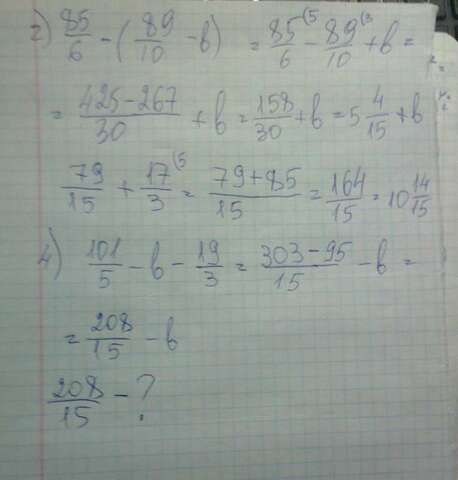 2) 85/6 - (89/10 - b) = 85(5/6 - 89(3/10 + b =
= 425-267/30 + b = 158/30 + b = 5 4/15 + b
79/15 + 17(5/3 = 79+85/15 = 164/15 = 10 14/15
4) 101/5 - b - 19/3 = 303-95/15 - b =
= 208/15 - b
208/15 - ?